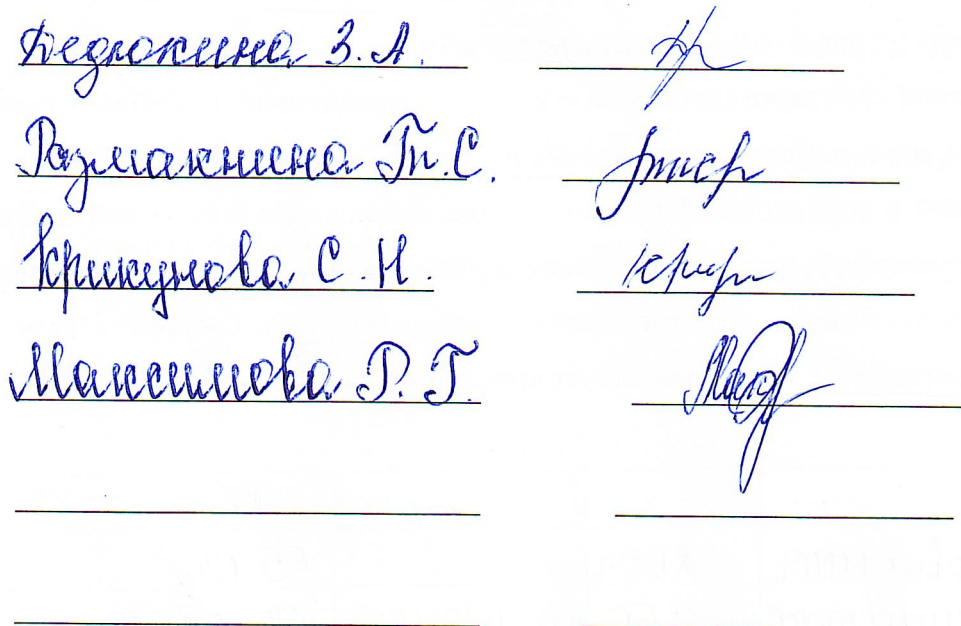 Дедюхина З.А.
Размахнина Т.С.
Крикунова С.Н.
Максимова Р.Г.